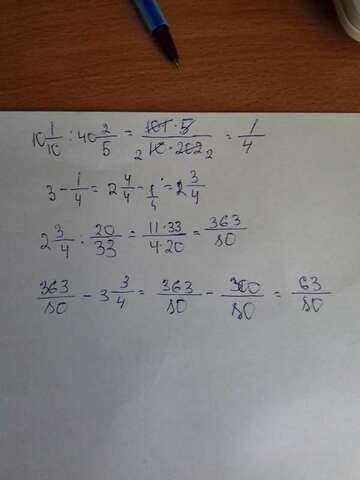 10 1/10 : 40 2/5 = 101·5/10·202 2 2 = 1/4
3 - 1/4 = 2 4/4 - 1/4 = 2 3/4
2 3/4 : 20/33 = 11·33/4·20 = 363/80
363/80 - 3 3/4 = 363/80 - 300/80 = 63/80